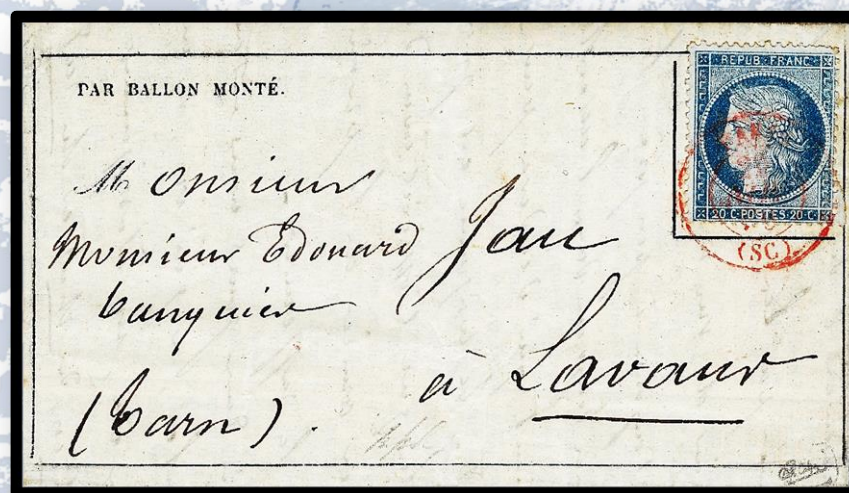 PAR BALLON MONTÉ.
REPUB. FRANC.
20 C. POSTES. 20 C.
(SC)
Monsieur
Monsieur Edouard Jau
banquier
à Lavaur
(Tarn).